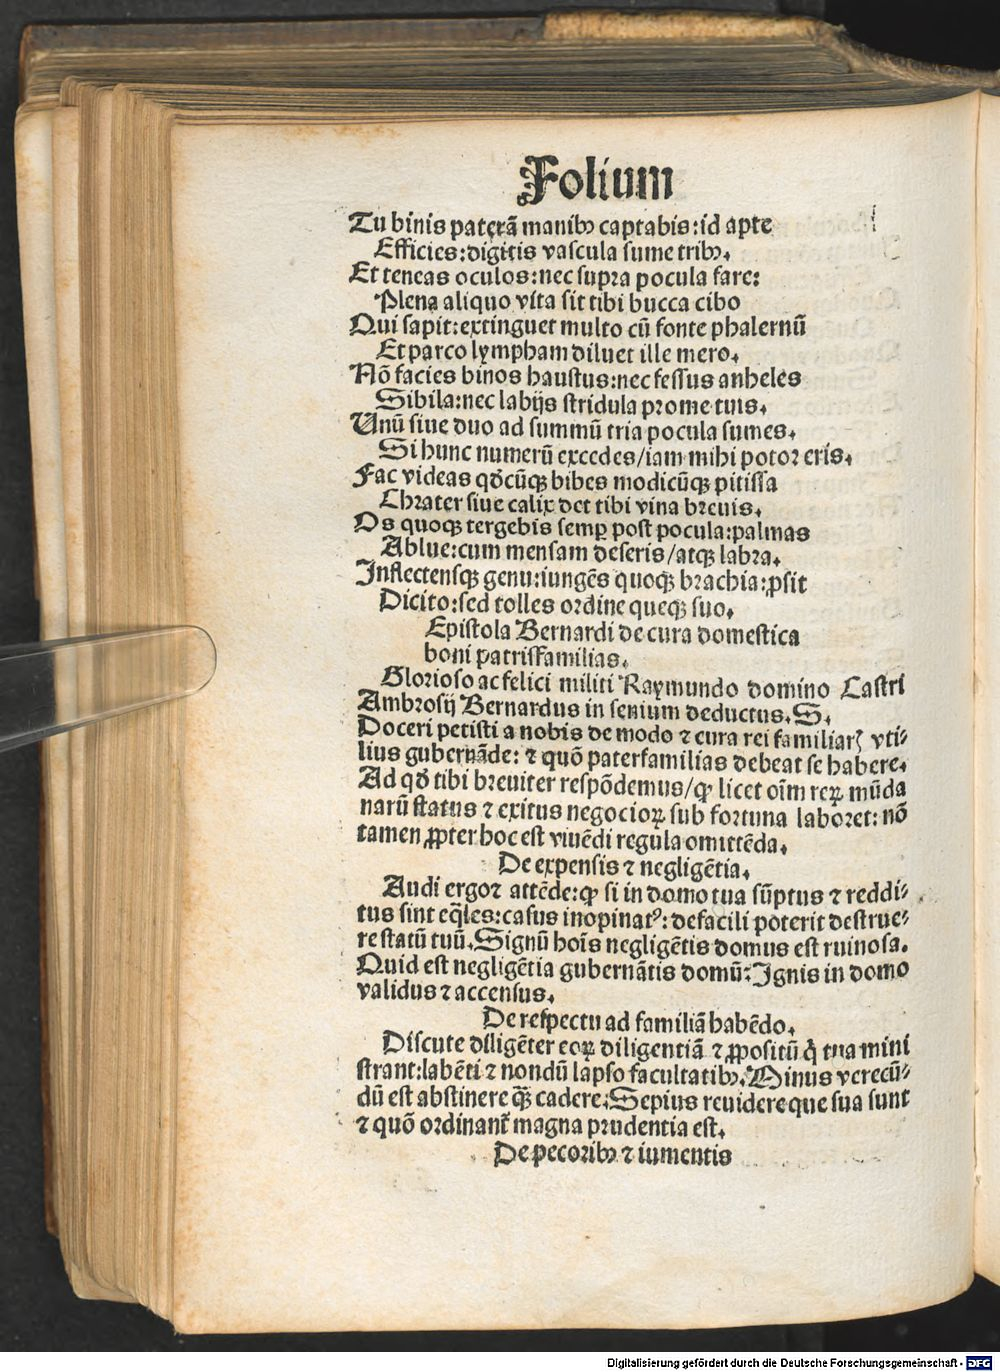 Folium
Tu binis paterā manibꝫ captabis: id apte
Efficies: digitis vascula sume tribꝫ.
Et teneas oculos: nec supra pocula fare:
Plena aliquo vita sit tibi bucca cibo
Qui sapit: extinguet multo cū fonte phalernū
Et parco lympham diluet ille mero.
Nō facies binos haustus: nec fessus anheles
Sibila: nec labijs stridula prome tuis.
Unū siue duo ad summū tria pocula sumes.
Si hunc numerū excedes/iam mihi potor eris.
Fac videas qđcūqꝫ bibes modicūqꝫ pitissa
Chrater siue calix det tibi vina breuis.
Os quoqꝫ tergebis semꝑ post pocula: palmas
Ablue: cum mensam deseris/atqꝫ labra.
Inflectensqꝫ genu: iungēs quoqꝫ brachia: ꝓsit
Dicito: sed tolles ordine queqꝫ suo.
Epistola Bernardi de cura domestica
boni patrisfamilias.
Glorioso ac felici militi Raymundo domino Castri
Ambrosij Bernardus in senium deductus. S.
Doceri petisti a nobis de modo ⁊ cura rei familiarꝭ vti⸗
lius gubernāde: ⁊ quō paterfamilias debeat se habere.
Ad qđ tibi breuiter respōdemus/ꝙ licet oīm reꝝ mūda
narū status ⁊ exitus negocioꝝ sub fortuna laboret: nō
tamen ꝓpter hoc est viuēdi regula omittēda.
De expensis ⁊ negligētia.
Audi ergo ⁊ attēde: ꝙ si in domo tua sūptus ⁊ reddi⸗
tus sint eq̄les: casus inopinatꝰ: defacili poterit destrue⸗
re statū tuū. Signū hoīs negligētis domus est ruinosa.
Quid est negligētia gubernātis domū: Ignis in domo
validus ⁊ accensus.
De respectu ad familiā habēdo.
Discute diligēter eoꝝ diligentiā ⁊ ꝓpositū q̇ tua mini
strant: labēti ⁊ nondū lapso facultatibꝫ. Minus verecū⸗
dū est abstinere q̄ꝫ cadere. Sepius reuidere que sua sunt
⁊ quō ordinant᷑ magna prudentia est.
De pecoribꝫ ⁊ iumentis
Digitalisierung gefördert durch die Deutsche Forschungsgemeinschaft - DFG